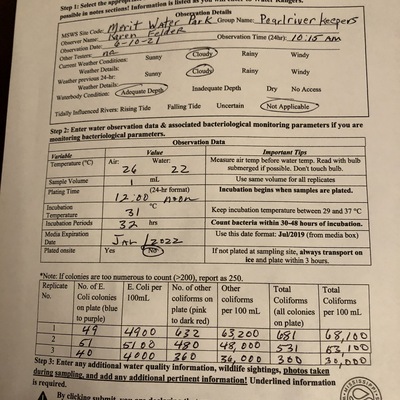 Step 1: Select the appropriate
possible in notes sections! Information is listed as you will enter to Water Rangers.
Observation Details
MSWS Site Code: Merit Water Park Group Name: Pearlriver Keepers
Observer Name: Karen Felder
Observation Date: 6-10-21 Observation Time (24hr): 10:15 AM
Other Testers: na
Current Weather Conditions: Sunny Cloudy Rainy Windy
Weather Details:
Weather previous 24-hr: Sunny Cloudy Rainy Windy
Weather Details:
Waterbody Condition: Adequate Depth Inadequate Depth Dry No Access
Tidally Influenced Rivers: Rising Tide Falling Tide Uncertain Not Applicable
Step 2: Enter water observation data & associated bacteriological monitoring parameters if you are
monitoring bacteriological parameters.
Observation Data
Variable Value Important Tips
Temperature (°C) Air: 26 Water: 22 Measure air temp before water temp. Read with bulb
submerged if possible. Don't touch bulb.
Sample Volume 1 mL Use same volume for all replicates
Plating Time (24-hr format) 12:00 noon Incubation begins when samples are plated.
Incubation Temperature 31 °C Keep incubation temperature between 29 and 37 °C
Incubation Periods 32 hrs Count bacteria within 30-48 hours of incubation.
Media Expiration Date Jan / 2022 Use this date format: Jul/2019 (from media box)
Plated onsite Yes No If not plated at sampling site, always transport on
ice and plate within 3 hours.
*Note: If colonies are too numerous to count (>200), report as 250.
Replicate No. No. of E. Coli colonies on plate (blue to purple) E. Coli per 100mL No. of other coliforms on plate (pink to dark red) Other coliforms per 100 mL Total Coliforms (all colonies on plate) Total Coliforms per 100 mL
1 49 4900 632 63,200 681 68,100
2 51 5100 480 48,000 531 53,100
3 40 4000 360 36,000 300 30,000
Step 3: Enter any additional water quality information, wildlife sightings, photos taken
during sampling, and add any additional pertinent information! Underlined information
is required.
By clicking submit, you are declaring that
MISSISSIPPI